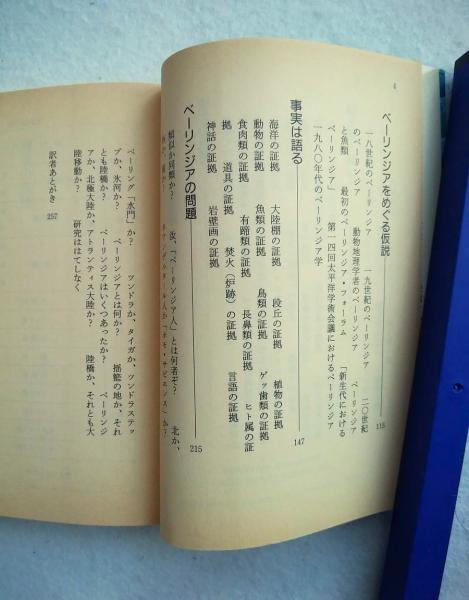 4
ベーリンジアをめぐる仮説 115
一八世紀のベーリンジア 一九世紀のベーリンジア 二〇世紀
のベーリンジア 動物地理学者のベーリンジア ベーリンジア
と魚類 最初のベーリンジア・フォーラム 「新生代における
ベーリンジア」 第一四回太平洋学術会議におけるベーリンジア
一九八〇年代のベーリンジア学
事実は語る 147
海洋の証拠 大陸棚の証拠 段丘の証拠 植物の証拠
動物の証拠 魚類の証拠 鳥類の証拠 ゲッ歯類の証拠
食肉類の証拠 有蹄類の証拠 長鼻類の証拠 ヒト属の証
拠 道具の証拠 焚火(炉跡)の証拠 言語の証拠
神話の証拠 岩壁画の証拠
ベーリンジアの問題 215
類似か同類か? 汝、「ベーリンジア人」とは何者ぞ? 北か、
ネアンデルタール人か「ホモ・サピエンス」か?
ベーリング「水門」か? ツンドラか、タイガか、ツンドラステッ
プか、氷河か? ベーリンジアとは何か? 揺籃の地か、それ
とも陸橋か? ベーリンジアはいくつあったか? ベーリンジ
アか、北極大陸か、アトランティス大陸か? 陸橋か、それとも大
陸移動か? 研究ははてしなく
訳者あとがき 257